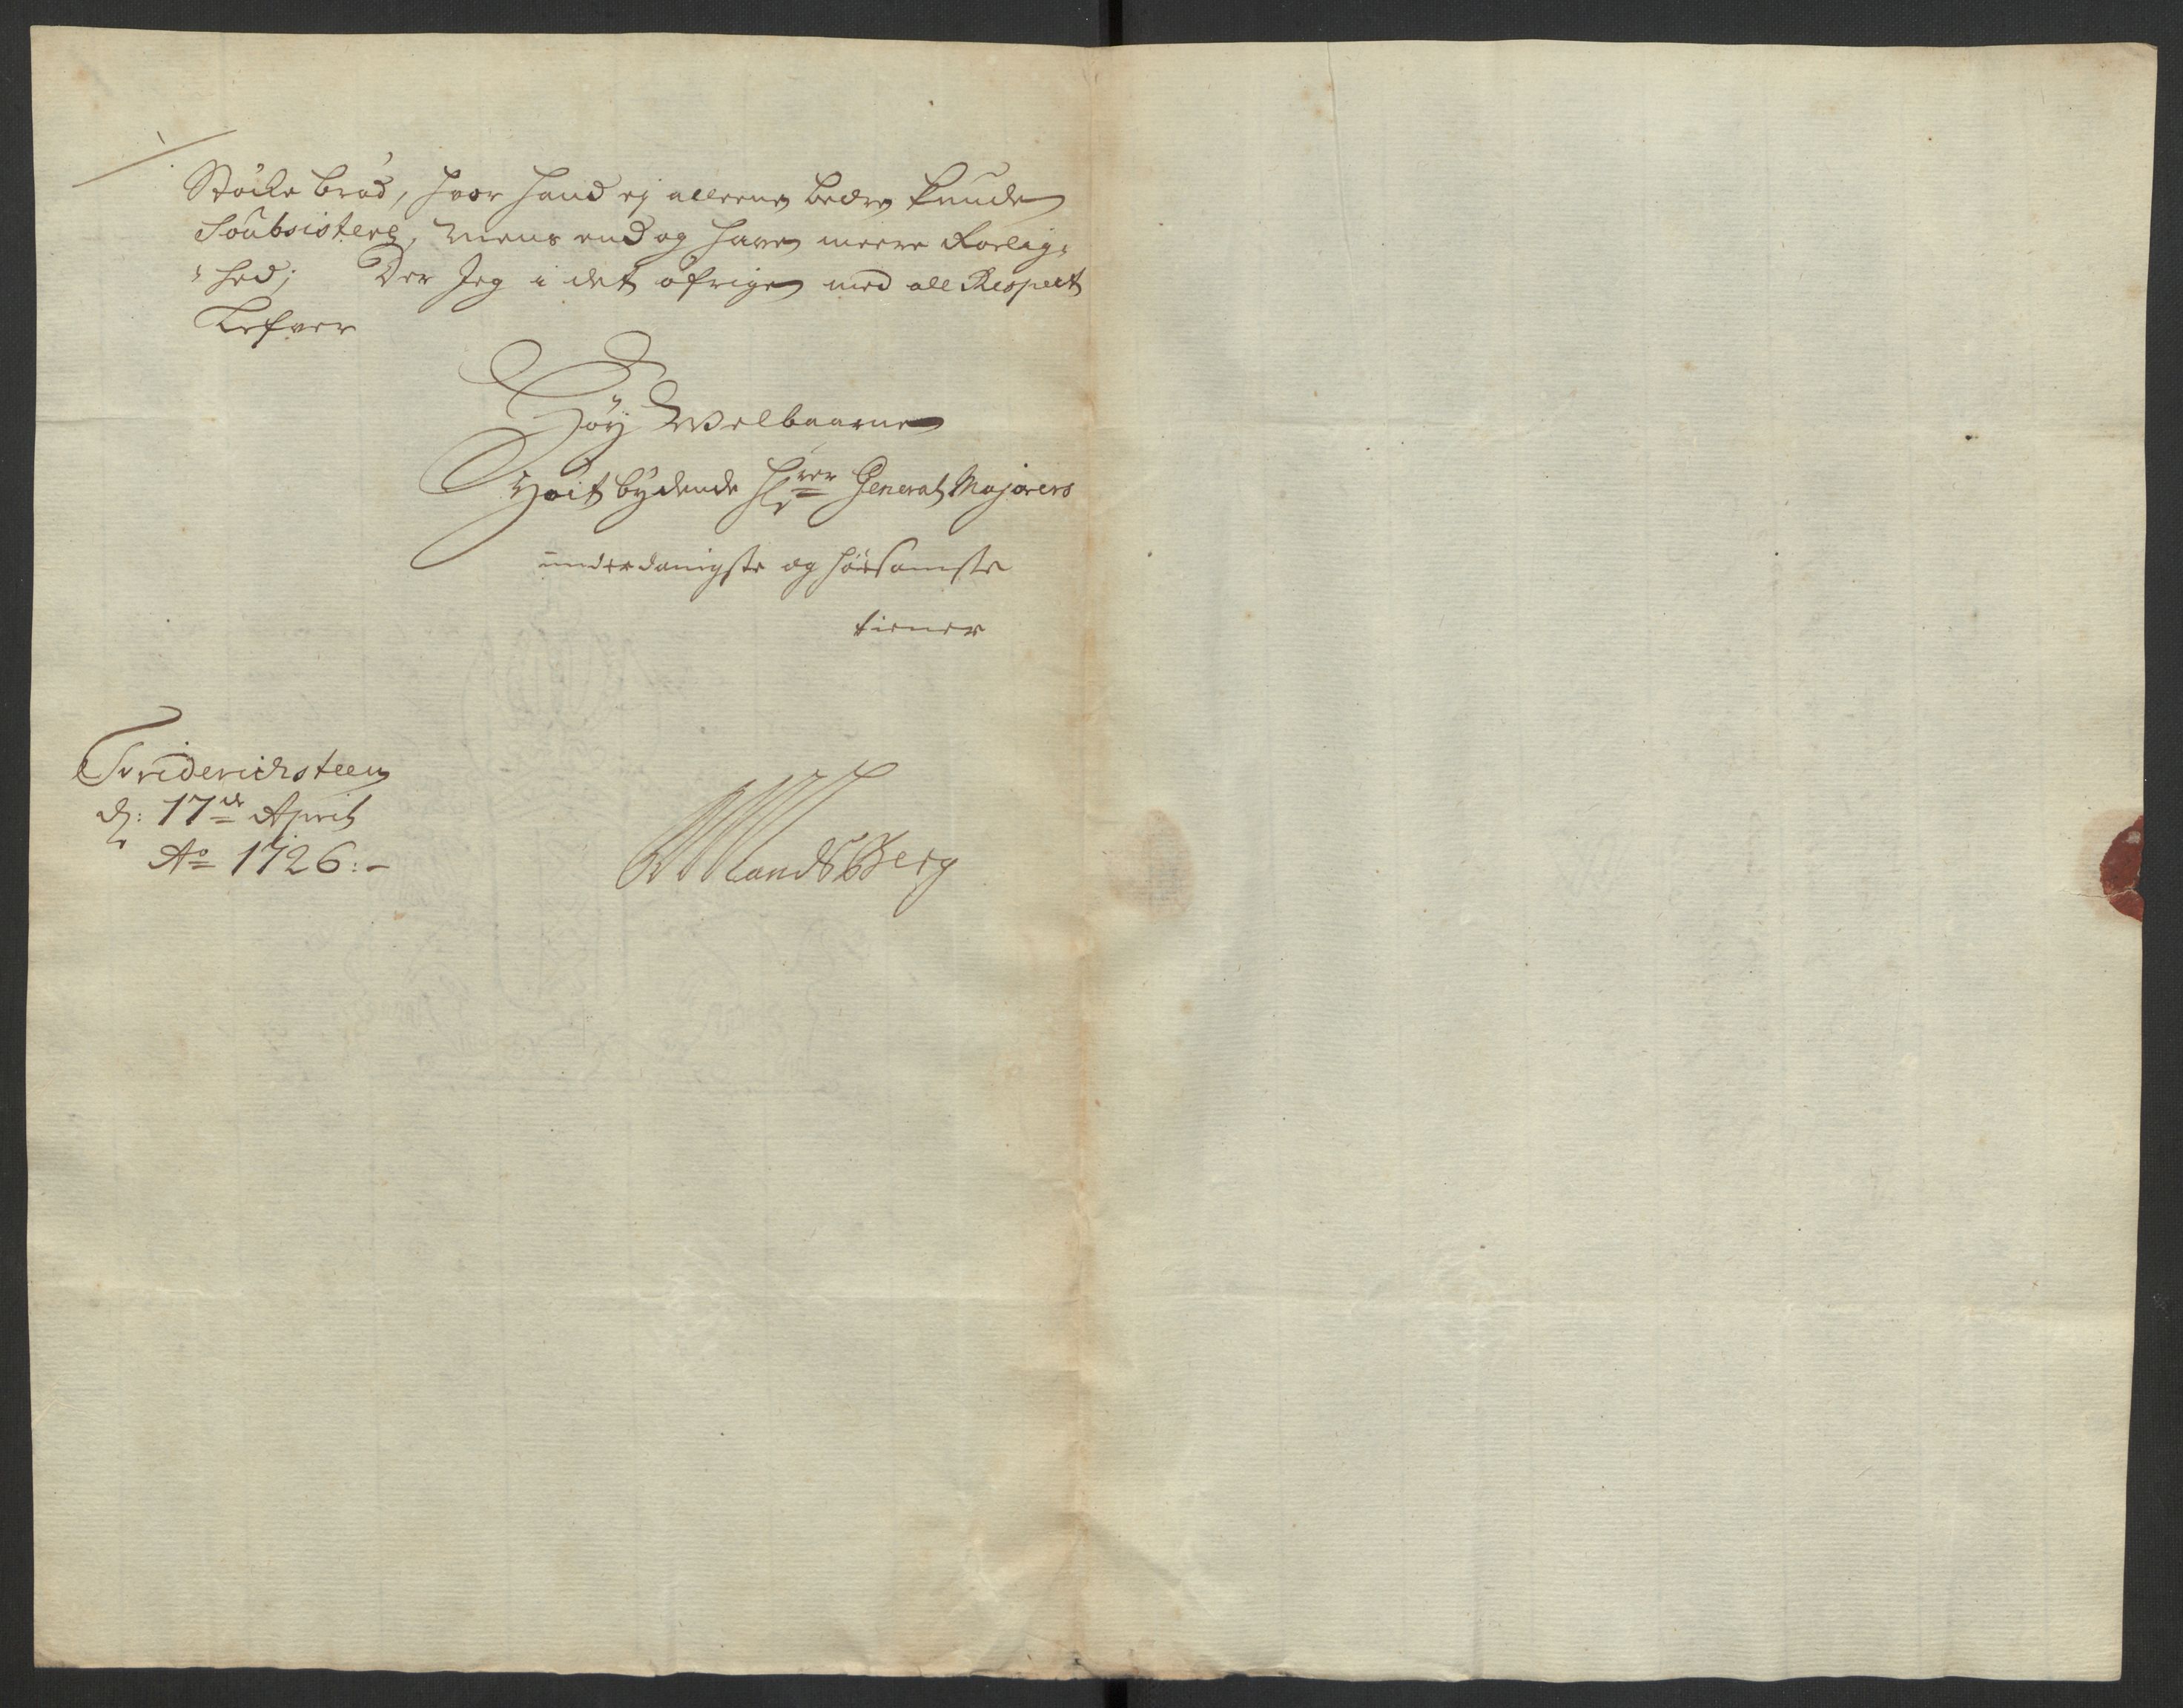 Støcke brød, hvor hand ej alleene bedre kunde
Soubsistere, mens end og have meere Roelig-
-hed; Der Jeg i det öfrige med all Respect
Lefver
Höy Welbaarne
Höit bydende Hrer General Majorers
underdanigste og hörsomste
tiener
Friderichsteen
d: 17de April
Ao 1726:-
Landsberg